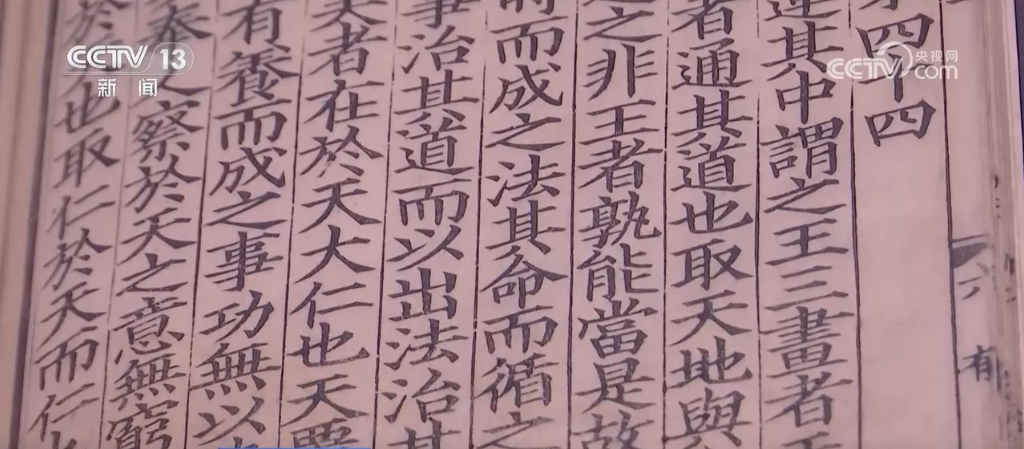 CCTV 13
新闻
央视网
CCTV.com
四十四
連其中謂之王三畫者
者通其道也取天地與
之非王者孰能當是故
時而成之法其命而循之
事治其道而以出法治其
美者在於天天大仁也天覆
有養而成之事功無以
奉之察於天之意無窮
於也取仁於天而仁
六
有